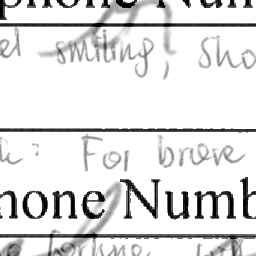 phone Num
smiling, Sho
For brave
hone Numb
fortune